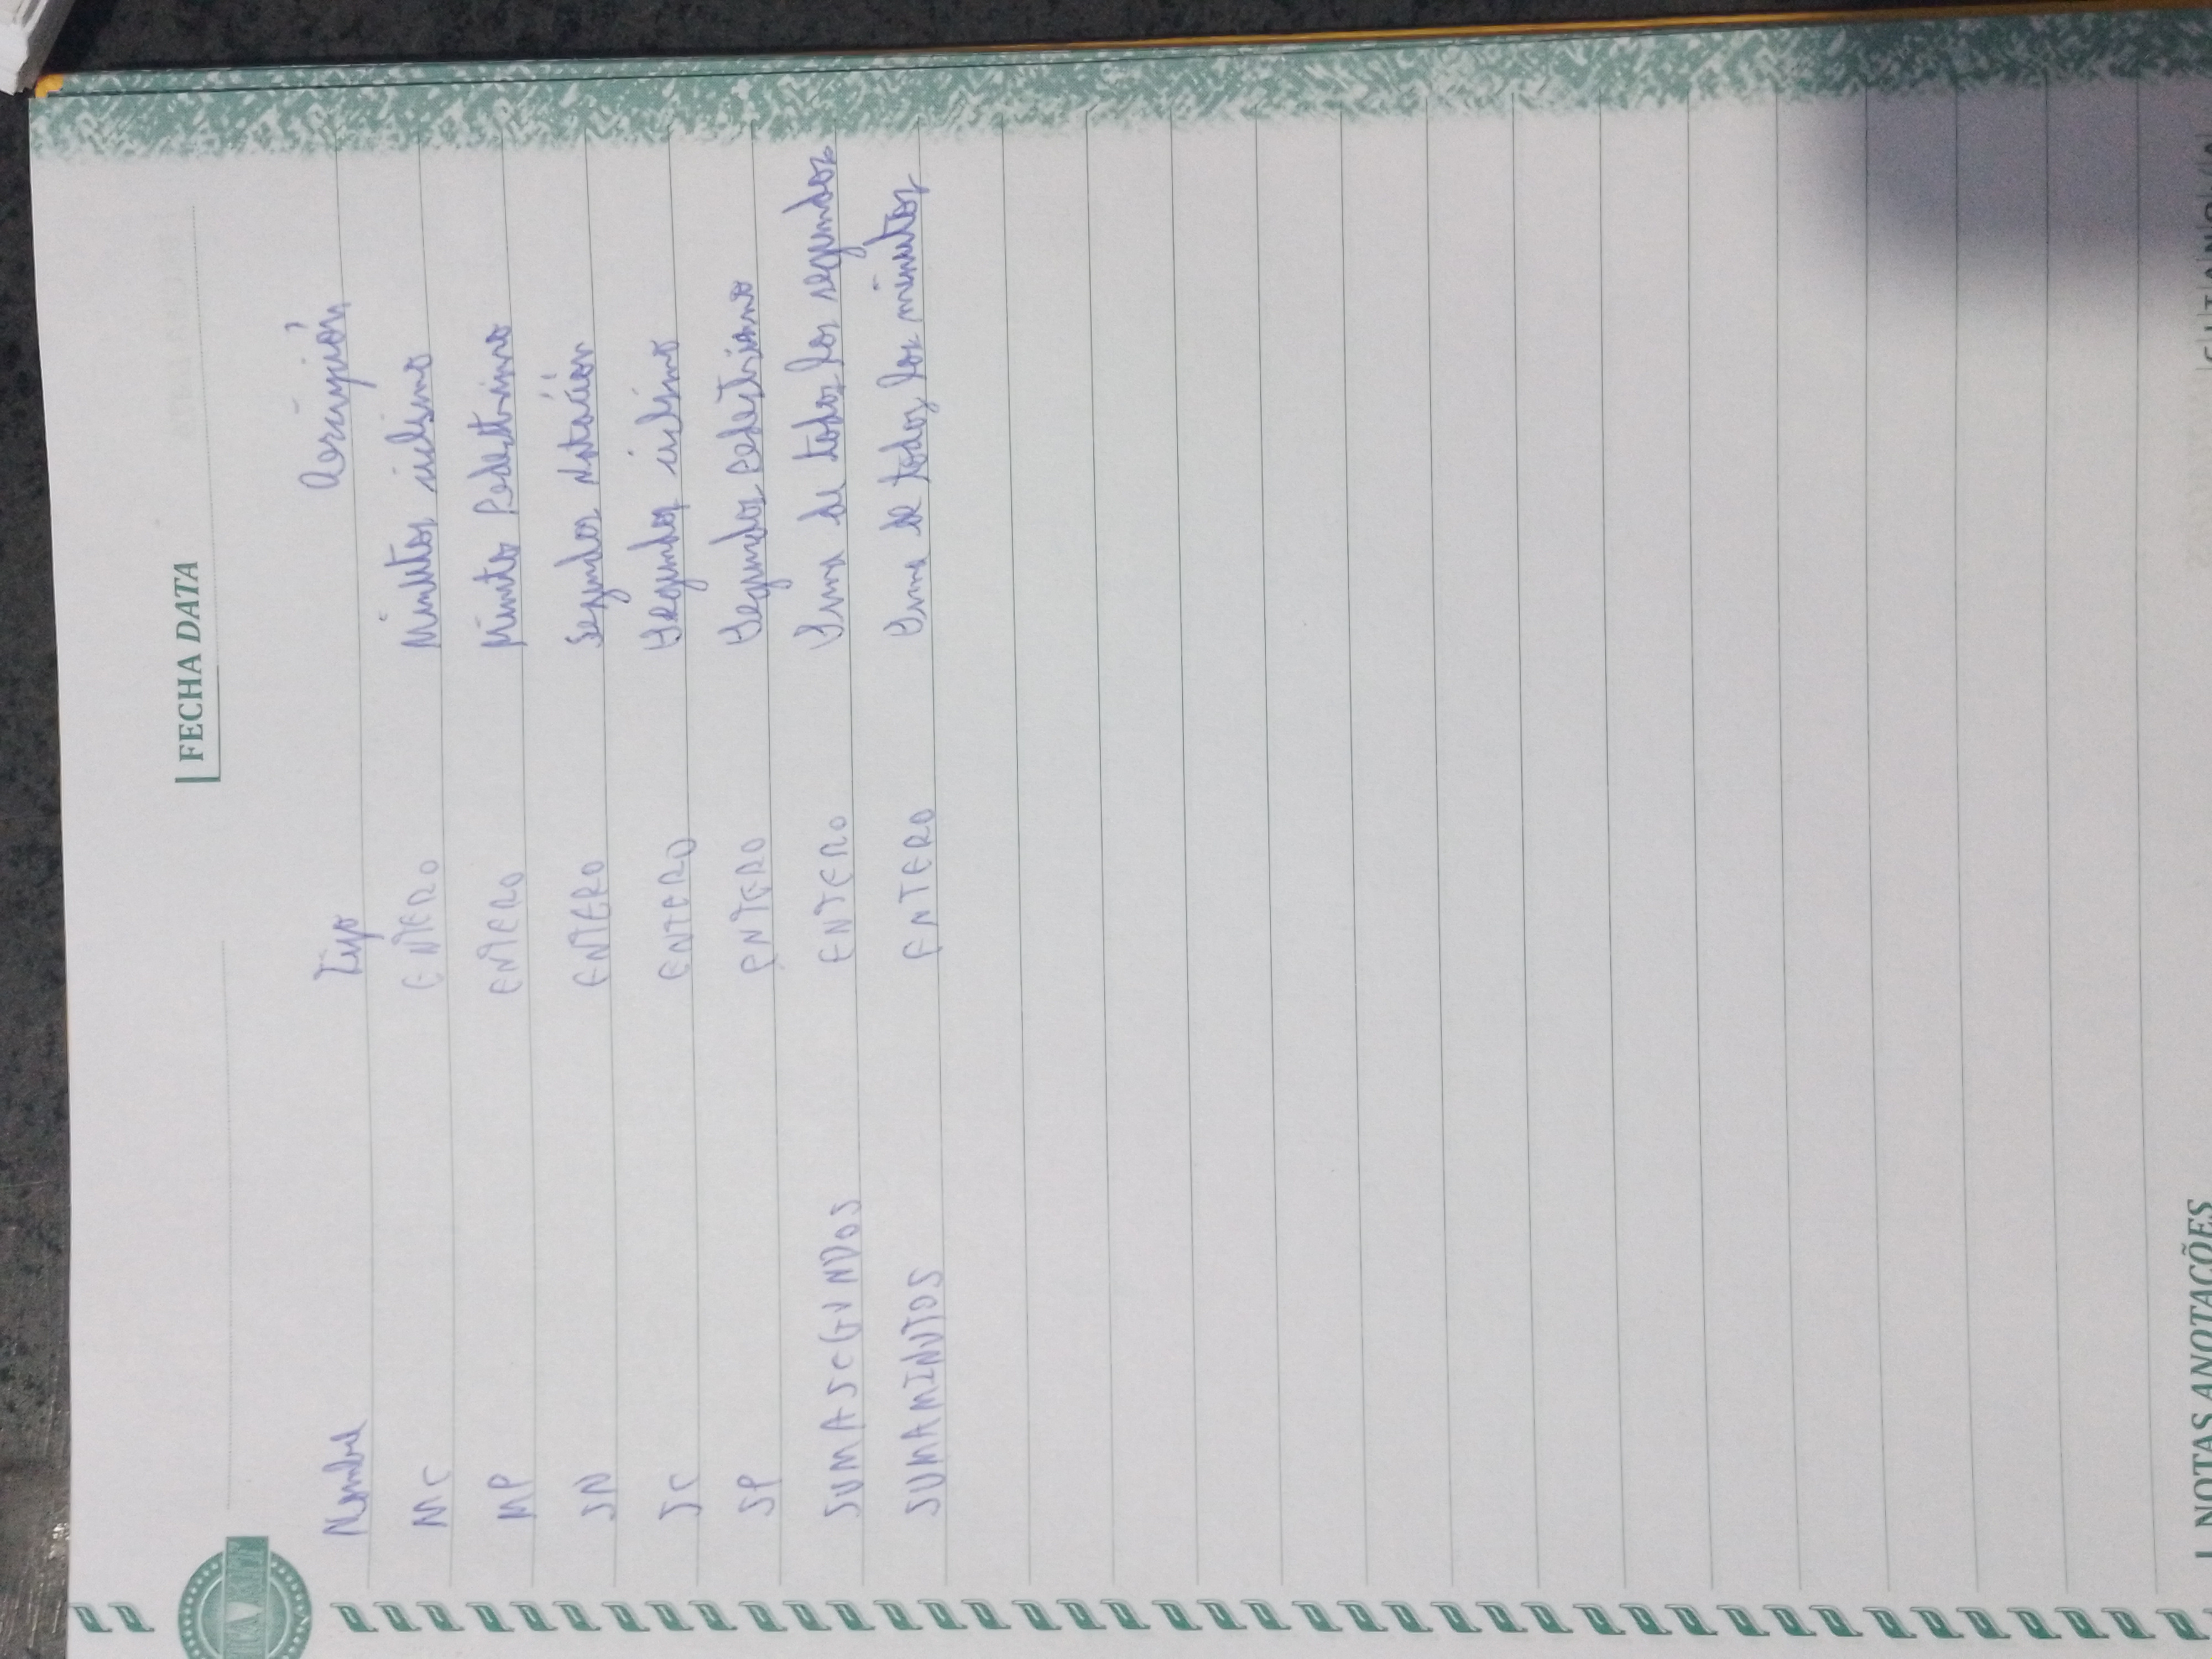 FECHA DATA
Nombre Tipo Descripción
MC ENTERO Minutos ciclismo
MP ENTERO Minuto Pedestrismo
SN ENTERO Segundos Natación
SC ENTERO Segundos ciclismo
SP ENTERO Segundos Pedestrismo
SUMASEGUNDOS ENTERO Suma de todos los segundos
SUMAMINUTOS ENTERO Suma de todos los minutos
NOTAS ANOTAÇÕES